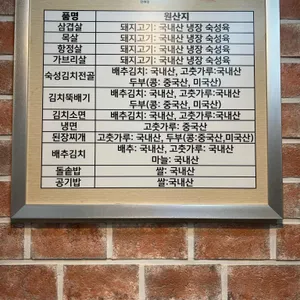 품명 원산지
삼겹살 돼지고기: 국내산 냉장 숙성육
목살 돼지고기: 국내산 냉장 숙성육
항정살 돼지고기: 국내산 냉장 숙성육
가브리살 돼지고기: 국내산 냉장 숙성육
숙성김치전골 배추김치: 국내산, 고춧가루:국내산
두부(콩: 중국산, 미국산)
김치뚝배기 배추김치: 국내산, 고춧가루:국내산
두부(콩: 중국산, 미국산)
김치소면 배추김치: 국내산, 고춧가루:국내산
냉면 고춧가루: 중국산
된장찌개 고춧가루: 국내산, 두부(콩:중국산,미국산)
배추김치 배추: 국내산, 고춧가루: 국내산
마늘: 국내산
돌솥밥 쌀:국내산
공기밥 쌀:국내산